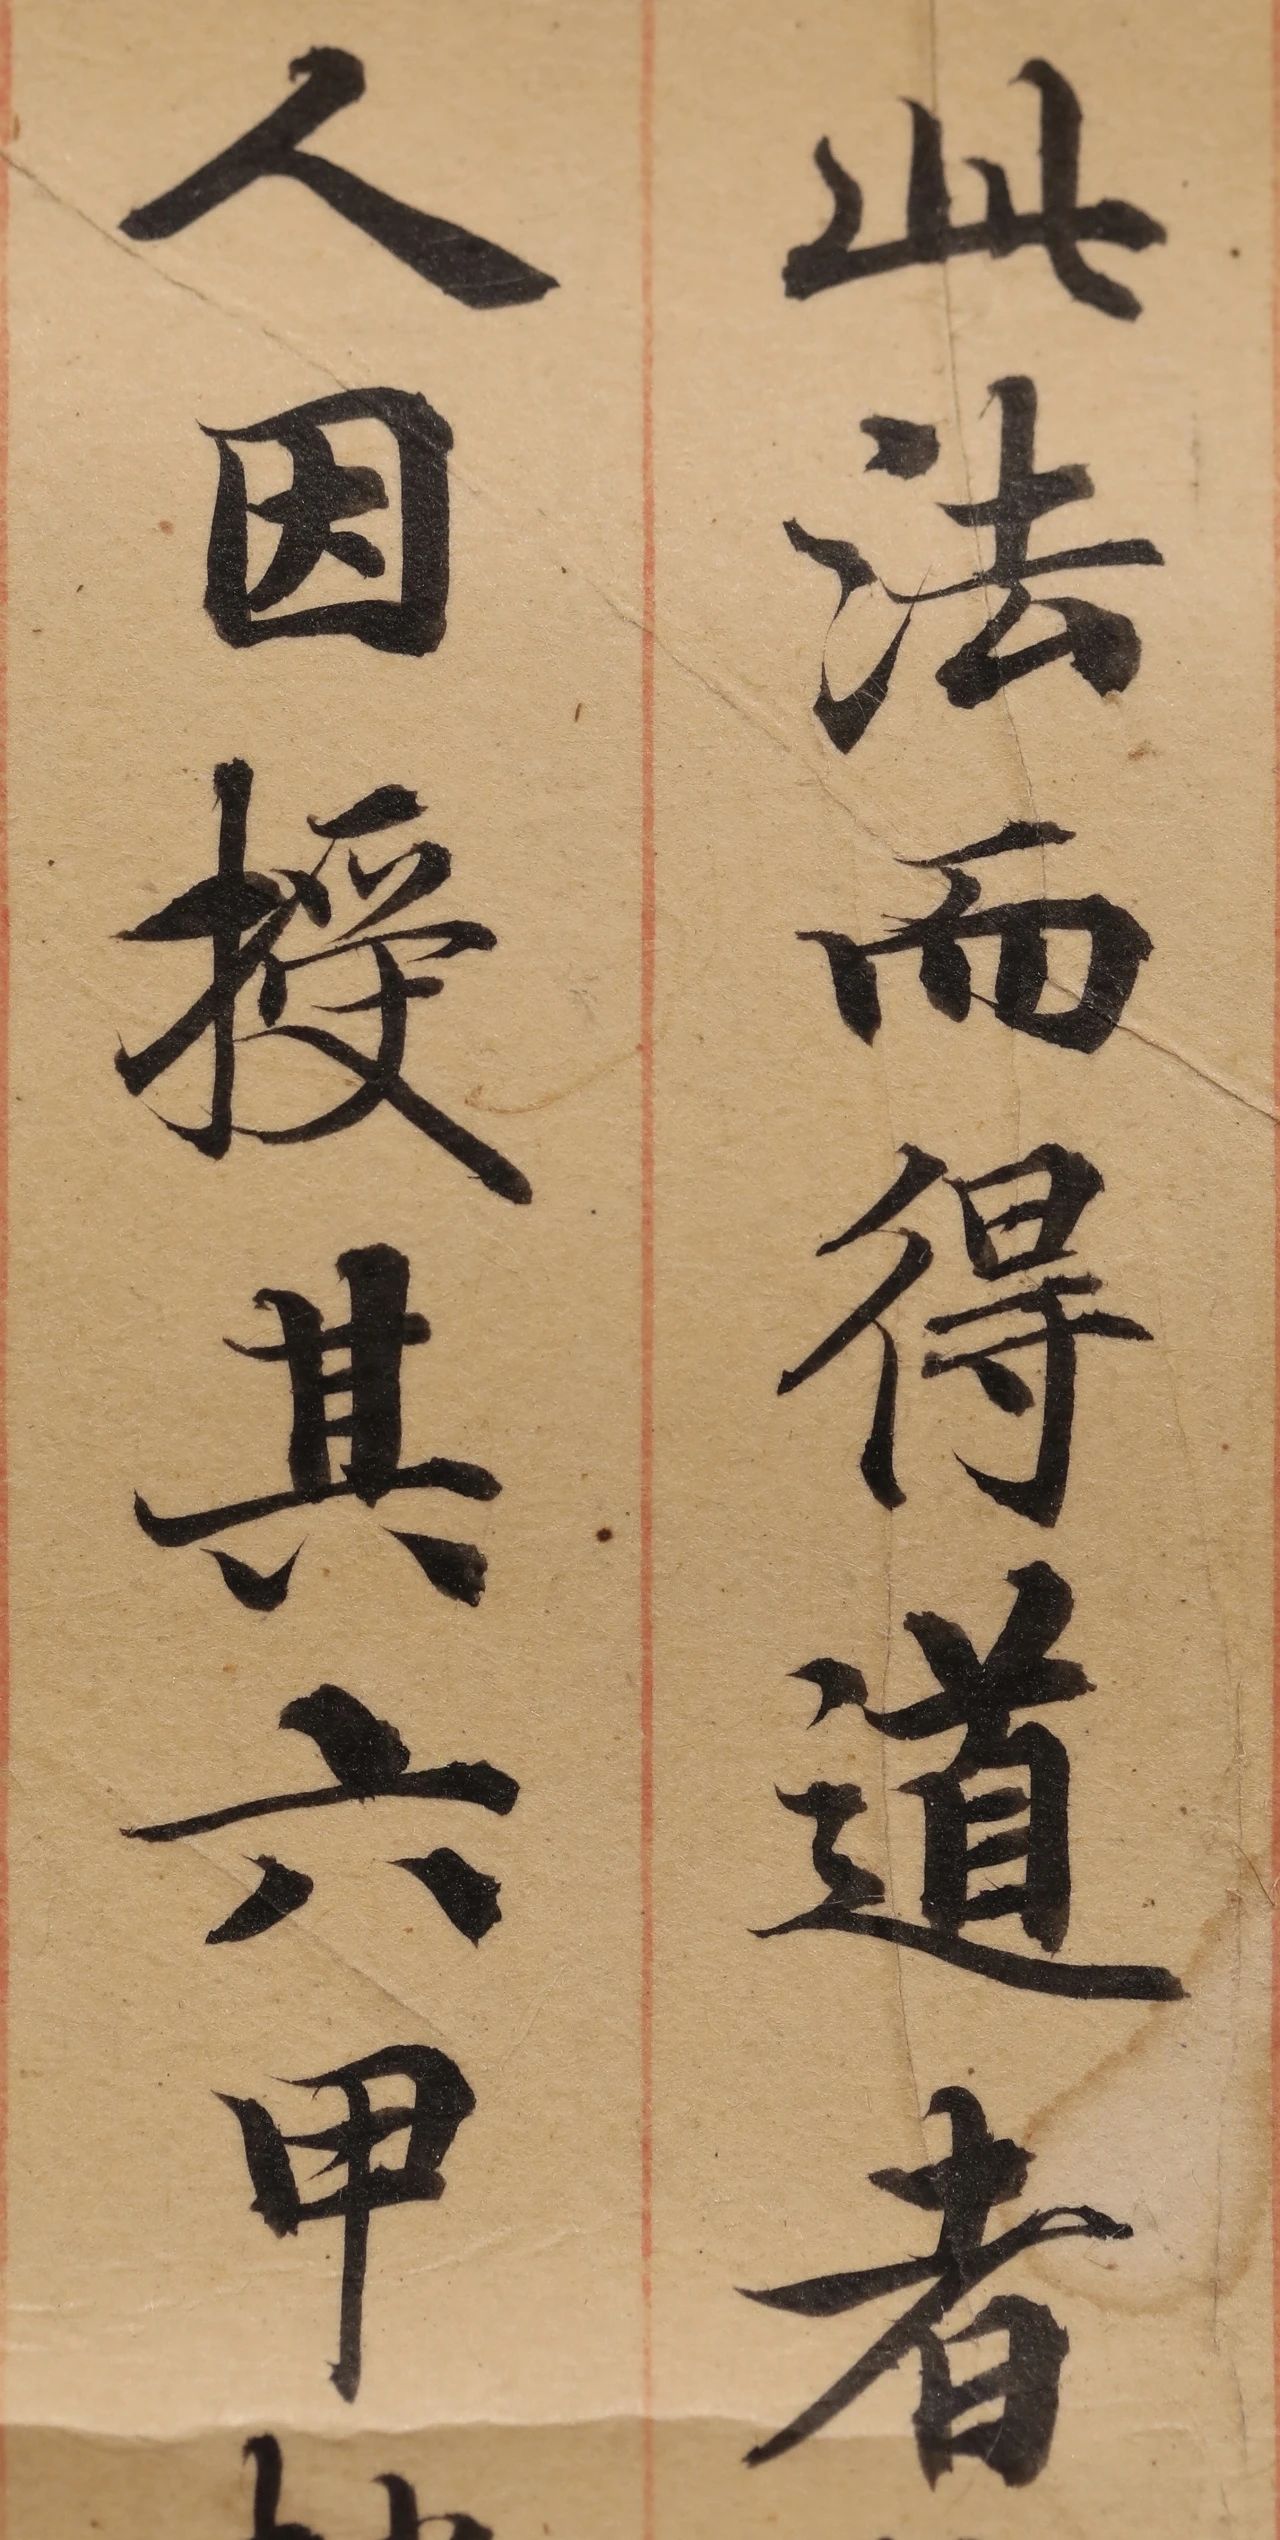 此法而得道者
人因授其六甲